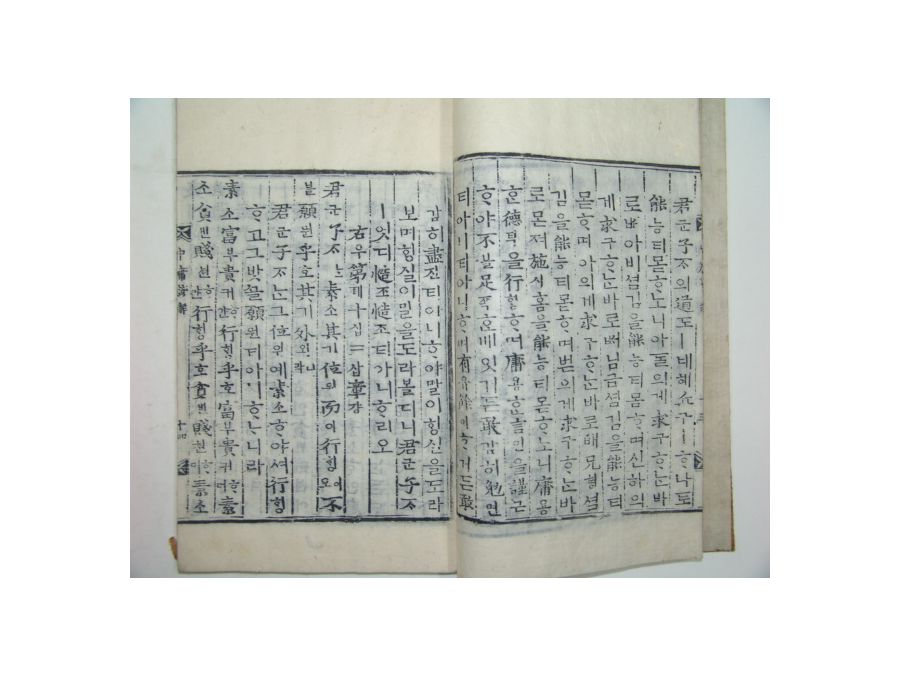 君군子ᄌᆞ의道도ㅣ네헤丘구ㅣᄒᆞ나토
能능티몯ᄒᆞ노니아ᄃᆞᆯ의게求구ᄒᆞᄂᆞᆫ바
로ᄡᅥ아비셤김을能능티몯ᄒᆞ며신하의
게求구ᄒᆞᄂᆞᆫ바로ᄡᅥ님금셤김을能능티
몯ᄒᆞ며아의게求구ᄒᆞᄂᆞᆫ바로ᄡᅥ兄형셤
김을能능티몯ᄒᆞ며벋의게求구ᄒᆞᄂᆞᆫ바
로몬져施시홈을能능티몯ᄒᆞ노니庸용
ᄒᆞᆫ德덕을行ᄒᆡᆼᄒᆞ며庸용ᄒᆞᆫ言언을謹근
ᄒᆞ야不블足죡ᄒᆞᆫ배잇거든敢감히勉면
티아니티아니ᄒᆞ며有유餘여ᄒᆞ거든敢
감히盡진티아니ᄒᆞ야말이ᄒᆡᆼ실을도라
보며ᄒᆡᆼ실이말을도라볼디니君군子ᄌᆞ
ㅣ엇디慥조慥조티아니ᄒᆞ리오
右우第뎨十십三삼章쟝
君군子ᄌᆞᄂᆞᆫ素소其기位위而이行ᄒᆡᆼ이오不
블願원乎호其기外외니라
君군子ᄌᆞᄂᆞᆫ그位위예素소ᄒᆞ야셔行ᄒᆡᆼ
ᄒᆞ고그밧글願원티아니ᄒᆞᄂᆞ니라
素소富부貴귀ᄒᆞ얀行ᄒᆡᆼ乎호富부貴귀ᄒᆞ며素
소貧빈賤쳔ᄒᆞ얀行ᄒᆡᆼ乎호貧빈賤쳔ᄒᆞ며素소
中庸諺解 十四